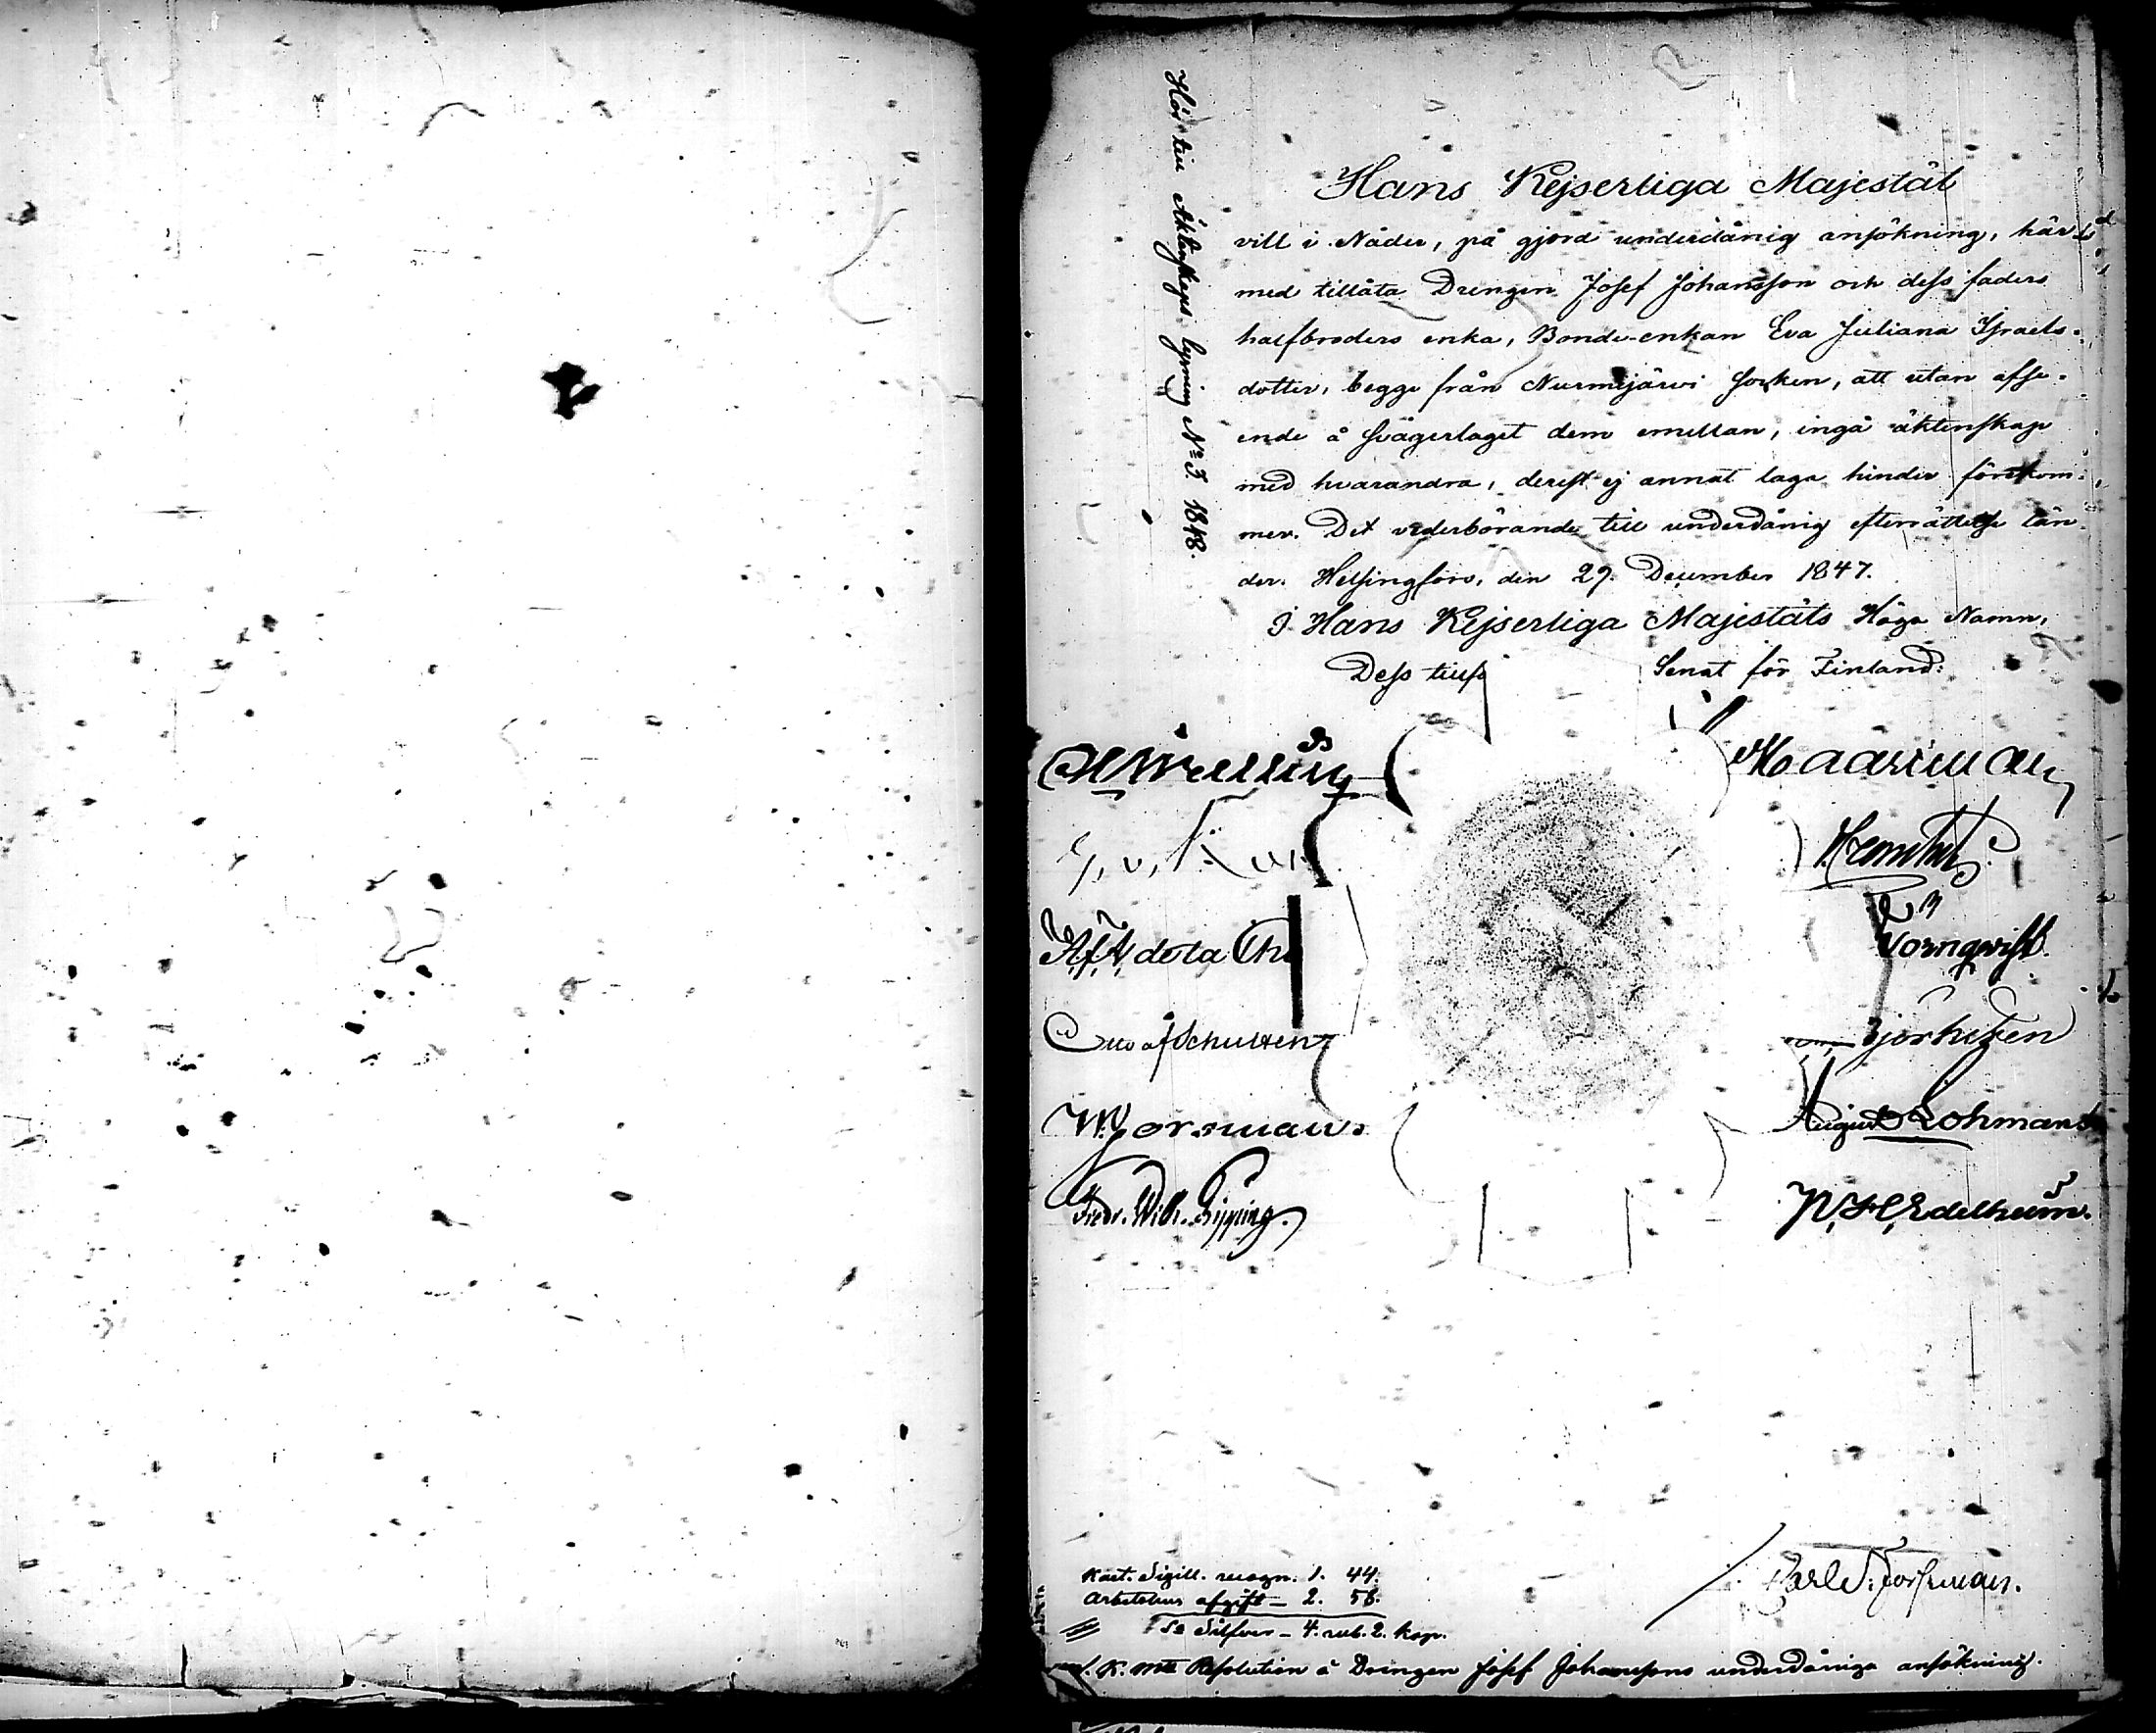 Hör till Äktenskaps lysning No 3. 1848.
Hans Kejserliga Majestät
vill i Nåder, på gjord underdånig ansökning, här-
med tillåta Drengen Josef Johansson och dess faders
halfbroders enka, Bonde-enkan Eva Juliana Israels-
dotter, begge från Nurmijärvi Socken, att utan afse-
ende å Svågerlaget dem emellan, ingå äktenskap
med hvarandra, derest ej annat laga hinder förekom-
mer. Det vederbörande till underdånig efterrättelse län-
der. Helsingfors, den 29. December 1847.
I Hans Kejserliga Majestäts Höga Namn,
Dess
Senat för Finland:
Haartman
de la Ch
Törnqvist.
Otto af Schultén
Björksten
W. Forsman.
August Lohmann
Fredr. Wilh. Pipping.
Edelheim.
Carl Forsman.
Kart. Sigill. recogn. 1. 44.
Arbetshus afgift - 2. 58.
Sa Silfver - 4. rub. 2. kop.
K. Mts Resolution å Drengen Josef Johanssons underdåniga ansökning.